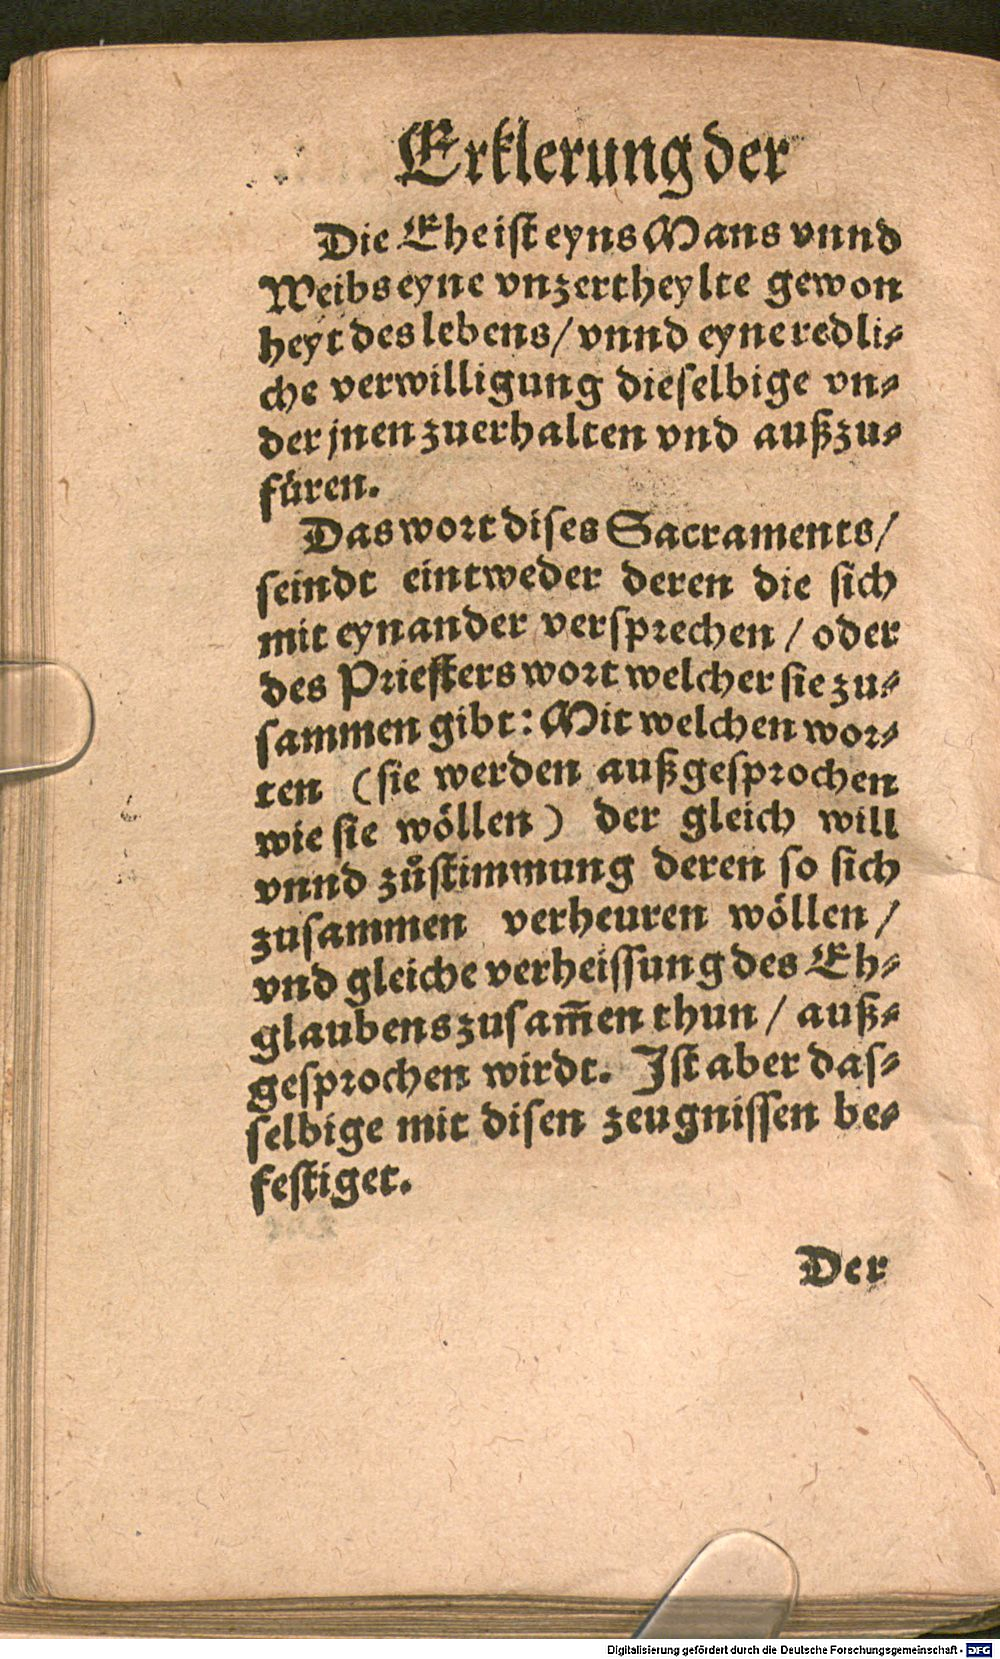 Erklerung der
Die Ehe ist eyns Mans vnnd
Weibs eyne vnzertheylte gewon
heyt des lebens / vnnd eyne redli⸗
che verwilligung dieselbige vn⸗
der jnen zuerhalten vnd außzu⸗
füren.
Das wort dises Sacraments /
seindt eintweder deren die sich
mit eynander versprechen / oder
des Priesters wort welcher sie zu⸗
sammen gibt: Mit welchen wor⸗
ten (sie werden außgesprochen
wie sie wöllen) der gleich will
vnnd zůstimmung deren so sich
zusammen verheuren wöllen /
vnd gleiche verheissung des Eh⸗
glaubens zusam̅en thun / auß⸗
gesprochen wirdt. Ist aber das⸗
selbige mit disen zeugnissen be⸗
festiget.
Der
Digitalisierung gefördert durch die Deutsche Forschungsgemeinschaft - DFG